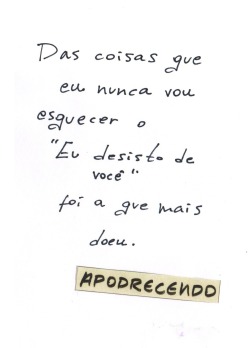 Das coisas que
eu nunca vou
esquecer o
"Eu desisto de
você"
foi a que mais
doeu.
APODRECENDO